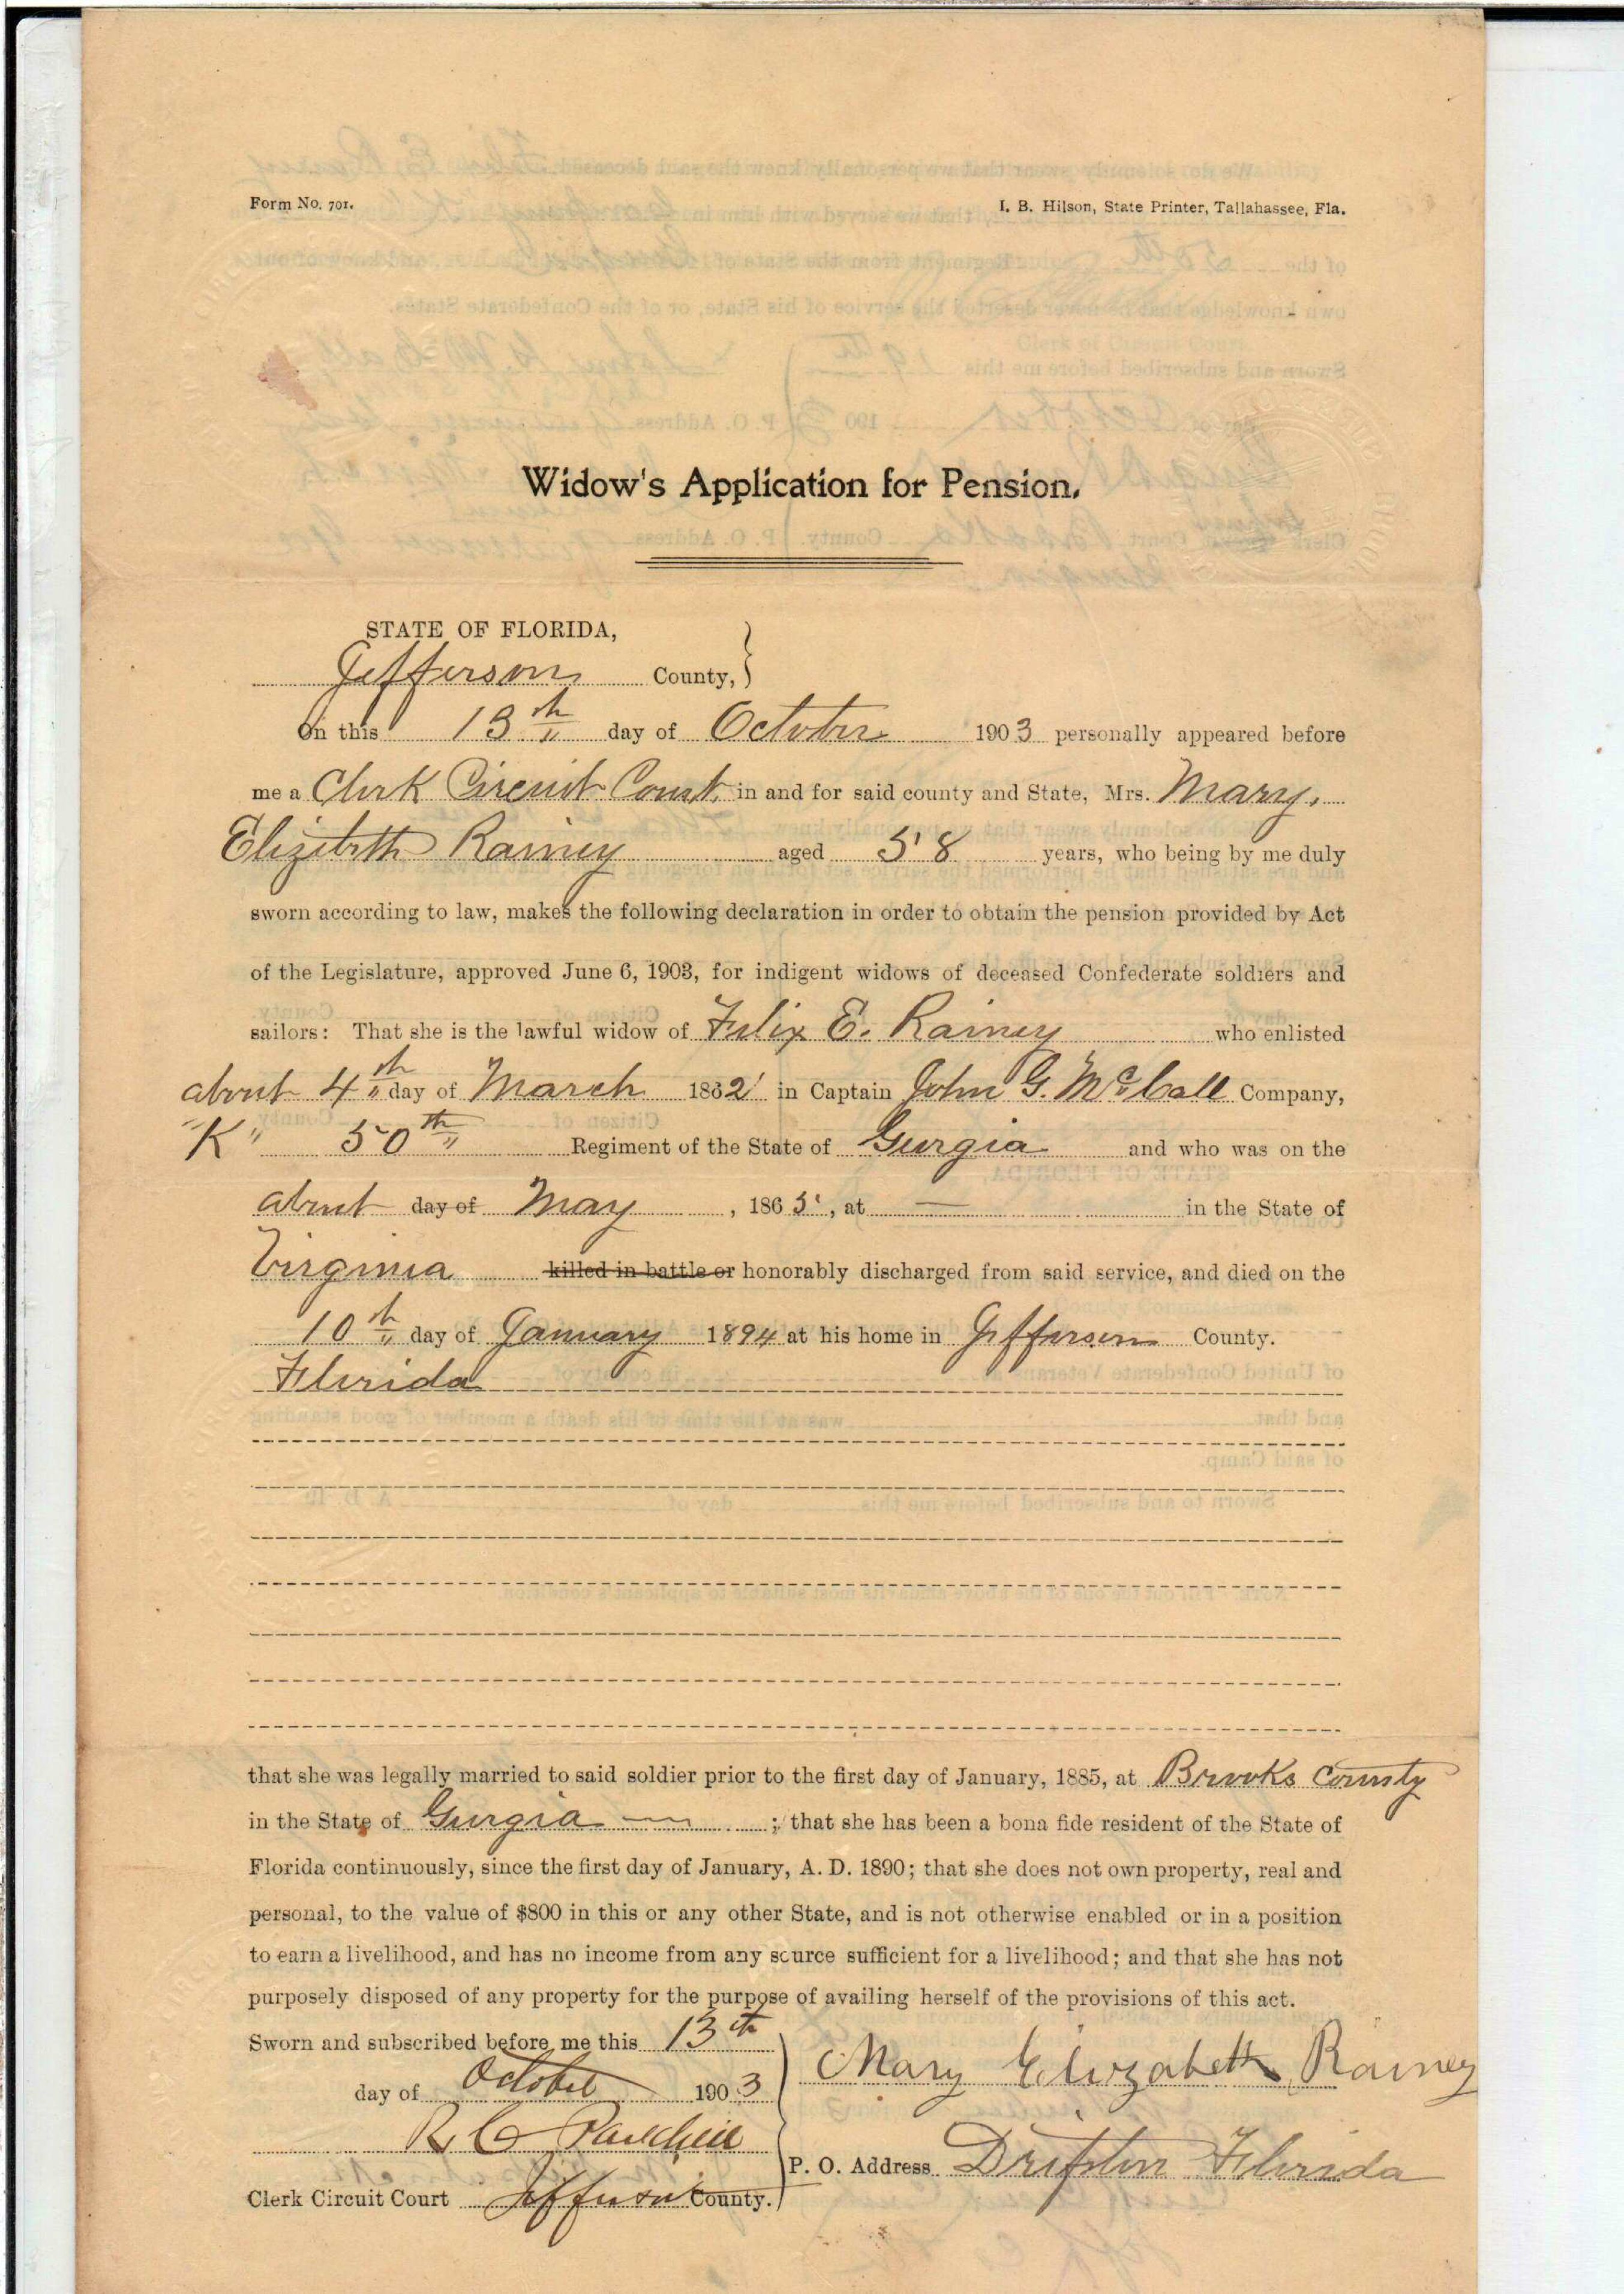 Form No. 701. I. B. Hilson, State Printer, Tallahassee, Fla.
Widow's Application for Pension.
STATE OF FLORIDA,
Jefferson County, }
On this 13th day of October 1903 personally appeared before
me a Clerk Circuit Court in and for said county and State, Mrs. Mary,
Elizibeth Rainey aged 58 years, who being by me duly
sworn according to law, makes the following declaration in order to obtain the pension provided by Act
of the Legislature, approved June 6, 1903, for indigent widows of deceased Confederate soldiers and
sailors: That she is the lawful widow of Felix E. Rainey who enlisted
about 4th day of March 1862 in Captain John G. McCall Company,
"K" 50th Regiment of the State of Georgia and who was on the
about day of May, 1865, at — in the State of
Virginia killed in battle or honorably discharged from said service, and died on the
10th day of January 1894 at his home in Jefferson County.
Florida
that she was legally married to said soldier prior to the first day of January, 1885, at Brooks County
in the State of Georgia — ; that she has been a bona fide resident of the State of
Florida continuously, since the first day of January, A. D. 1890; that she does not own property, real and
personal, to the value of $800 in this or any other State, and is not otherwise enabled or in a position
to earn a livelihood, and has no income from any source sufficient for a livelihood; and that she has not
purposely disposed of any property for the purpose of availing herself of the provisions of this act.
Sworn and subscribed before me this 13th
day of October 1903
Mary Elizabeth Rainey
R C
P. O. Address Drifton Florida
Clerk Circuit Court Jefferson County.